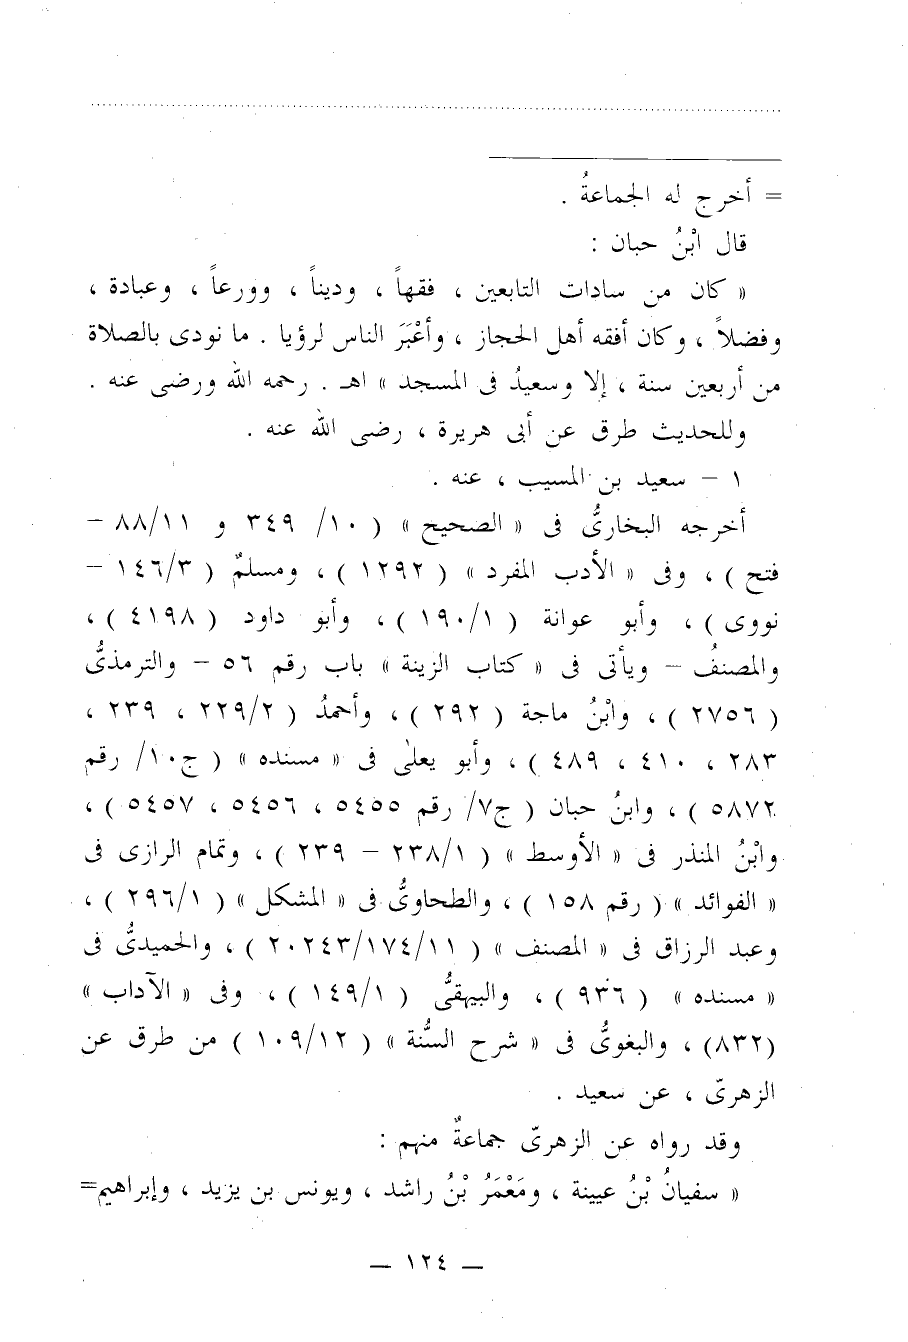 = أخرج له الجماعةُ .
قال ابْنُ حبان :
« كان من سادات التابعين ، فقهاً ، وديناً ، وورعاً ، وعبادة ،
وفضلاً ، وكان أفقه أهل الحجاز ، وأعْبَرَ الناس لرؤيا . ما نودى بالصلاة
من أربعين سنة ، إلا وسعيدُ فى المسجد » اهـ . رحمه الله ورضى عنه .
وللحديث طرق عن أبى هريرة ، رضى الله عنه .
١ – سعيد بن المسيب ، عنه .
أخرجه البخارىُّ فى « الصحيح » ( ١٠/ ٣٤٩ و ٨٨/١١ –
فتح ) ، وفى « الأدب المفرد » ( ١٢٩٢ ) ، ومسلمٌ ( ١٤٦/٣ –
نووى ) ، وأبو عوانة ( ١٩٠/١ ) ، وأبو داود ( ٤١٩٨ ) ،
والمصنفُ – ويأتى فى « كتاب الزينة » باب رقم ٥٦ – والترمذىُّ
( ٢٧٥٦ ) ، وابْنُ ماجة ( ٢٩٢ ) ، وأحمدُ ( ٢٢٩/٢ ، ٢٣٩ ،
٢٨٣ ، ٤١٠ ، ٤٨٩ ) ، وأبو يعلىٰ فى « مسنده » ( ج١٠/ رقم
٥٨٧٢ ) ، وابنُ حبان ( ج٧/ رقم ٥٤٥٥ ، ٥٤٥٦ ، ٥٤٥٧ ) ،
وابْنُ المنذر فى « الأوسط » ( ٢٣٨/١ – ٢٣٩ ) ، وتمام الرازى فى
« الفوائد » ( رقم ١٥٨ ) ، والطحاوىُّ فى « المشكل » ( ٢٩٦/١ ) ،
وعبد الرزاق فى « المصنف » ( ٢٠٢٤٣/١٧٤/١١ ) ، والحميدىُّ فى
« مسنده » ( ٩٣٦ ) ، والبيهقىُّ ( ١٤٩/١ ) ، وفى « الآداب »
(٨٣٢) ، والبغوىُّ فى « شرح السُّنة » ( ١٠٩/١٢ ) من طرق عن
الزهرىّ ، عن سعيد .
وقد رواه عن الزهرىّ جماعةٌ منهم :
« سفيانُ بْنُ عيينة ، ومَعْمَرُ بْنُ راشد ، ويونس بن يزيد ، وإبراهيم=
— ١٢٤ —